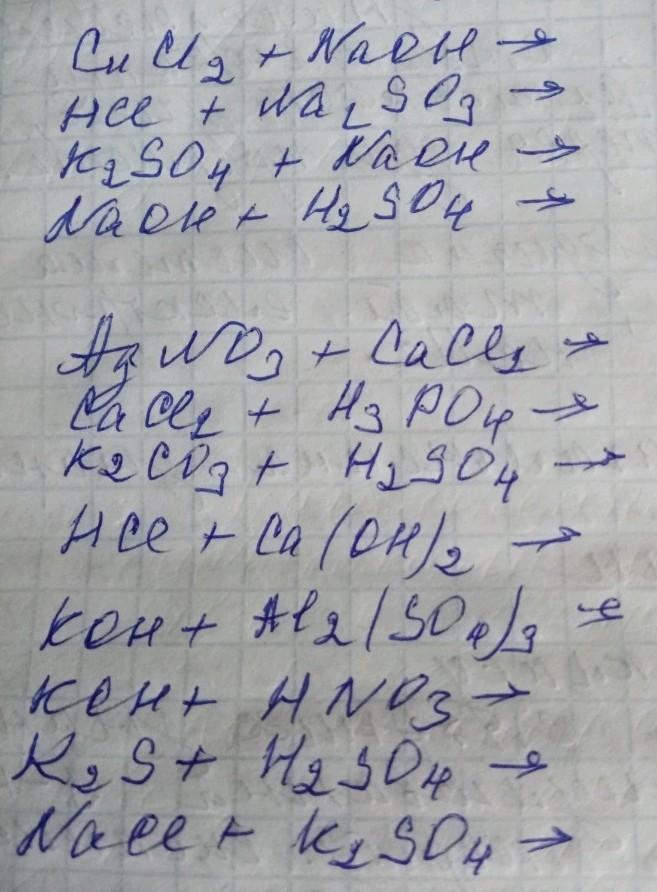 CuCl₂ + NaOH →
HCl + Na₂SO₃ →
K₂SO₄ + NaOH →
NaOH + H₂SO₄ →
AgNO₃ + CaCl₂ →
CaCl₂ + H₃PO₄ →
K₂CO₃ + H₂SO₄ →
HCl + Ca(OH)₂ →
KOH + Al₂(SO₄)₃ →
KOH + HNO₃ →
K₂S + H₂SO₄ →
NaCl + K₂SO₄ →